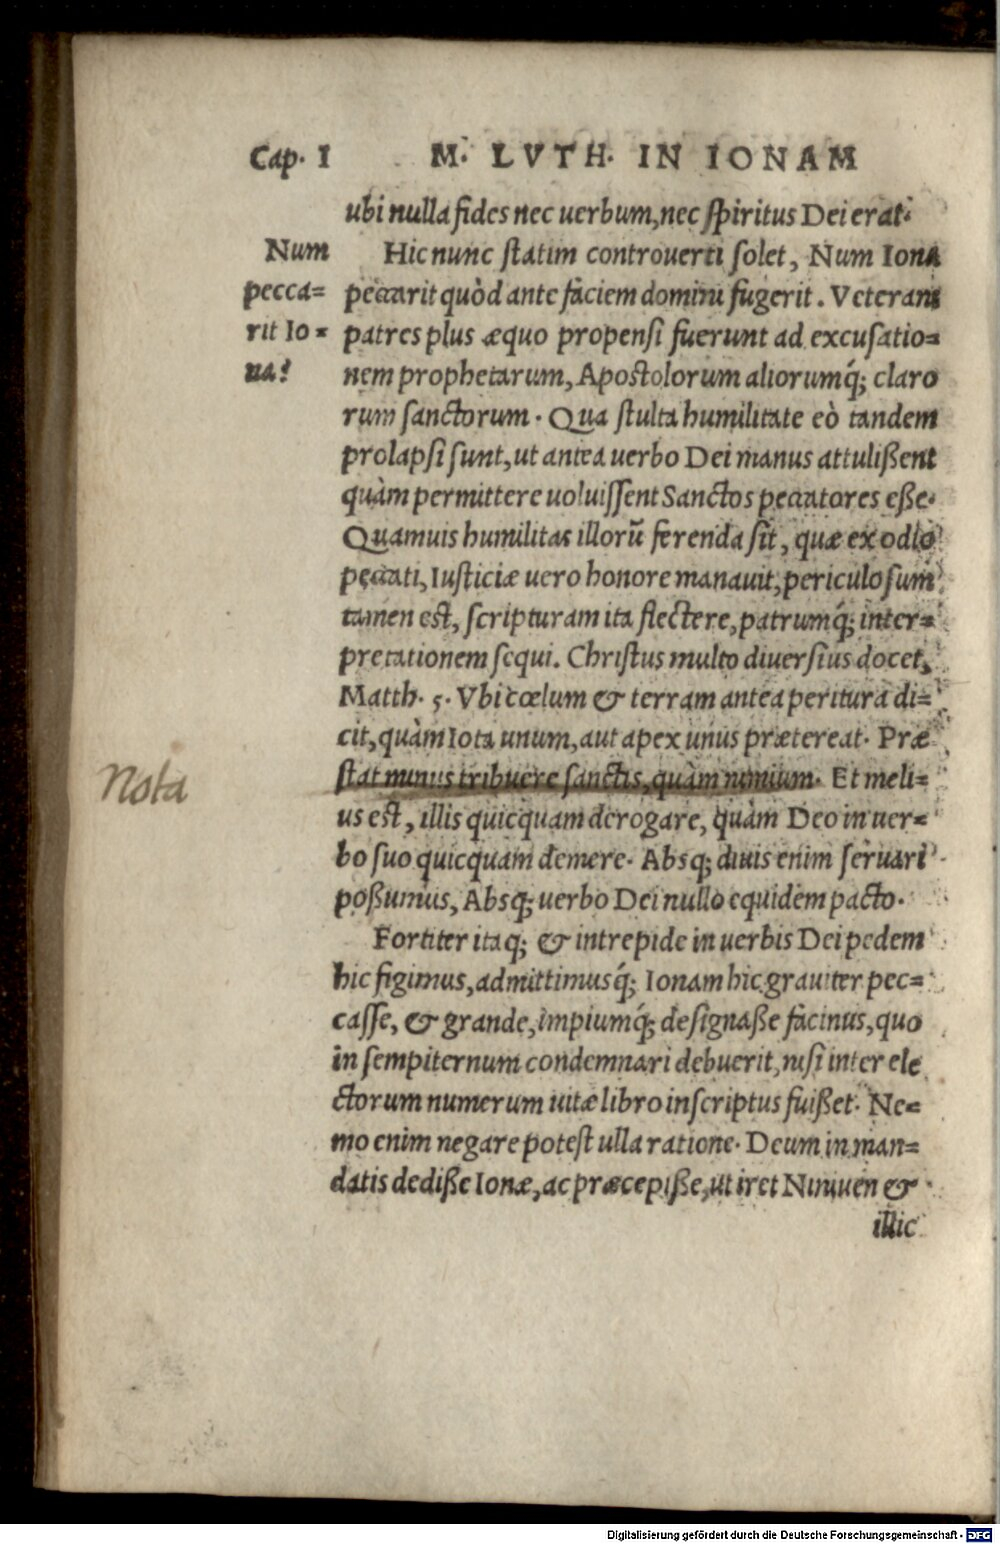 Cap. I M. LVTH. IN IONAM
ubi nulla fides nec uerbum, nec spiritus Dei erat.
Num
pecca=
rit Io=
na?
Hic nunc statim controuerti solet, Num Iona
peccarit quòd ante faciem domini fugerit. Veterani
patres plus æquo propensi fuerunt ad excusatio=
nem prophetarum, Apostolorum aliorumq́; claro
rum sanctorum. Qua stulta humilitate eò tandem
prolapsi sunt, ut antea uerbo Dei manus attulißent
quàm permittere uoluissent Sanctos peccatores eße.
Quamuis humilitas illorũ ferenda sit, quæ ex odio
peccati, Iusticiæ uero honore manauit, periculosum
tamen est, scripturam ita flectere, patrumq́; inter=
pretationem sequi. Christus multo diuersius docet,
Matth. 5. Vbi cœlum & terram antea peritura di=
cit, quàm Iota unum, aut apex unus prætereat. Præ
Nota
stat minus tribuere sanctis, quàm nimium. Et meli=
us est, illis quicquam derogare, quàm Deo in uer=
bo suo quicquam demere. Absq; diuis enim seruari
poßumus, Absq; uerbo Dei nullo equidem pacto.
Fortiter itaq; & intrepide in uerbis Dei pedem
hic figimus, admittimusq́; Ionam hic grauiter pec=
casse, & grande, impiumq́; designaße facinus, quo
in sempiternum condemnari debuerit, nisi inter ele
ctorum numerum uitæ libro inscriptus fuißet. Ne=
mo enim negare potest ulla ratione. Deum in man=
datis dediße Ionæ, ac præcepiße, ut iret Niniuen &
illic
Digitalisierung gefördert durch die Deutsche Forschungsgemeinschaft - DFG